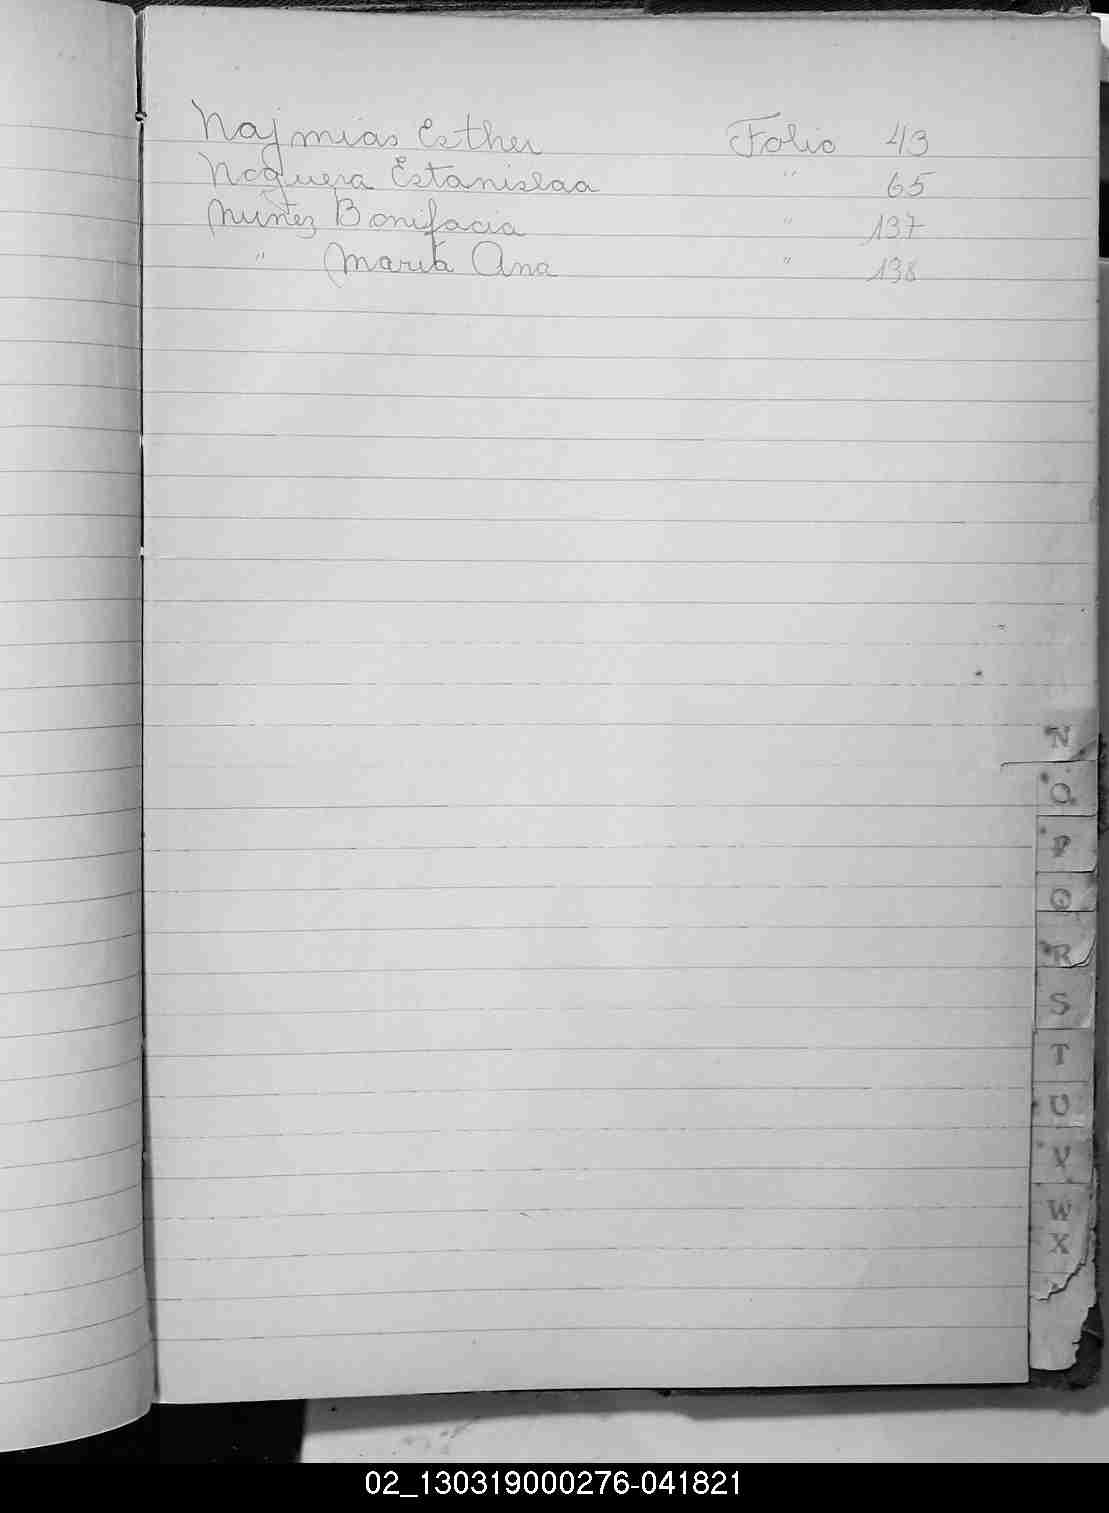 Najmias Esther Folio 43
Noguera Estanislaa " 65
Nuñez Bonifacia " 137
" María Ana " 138
N
O
P
Q
R
S
T
U
V
W
X
02_130319000276-041821